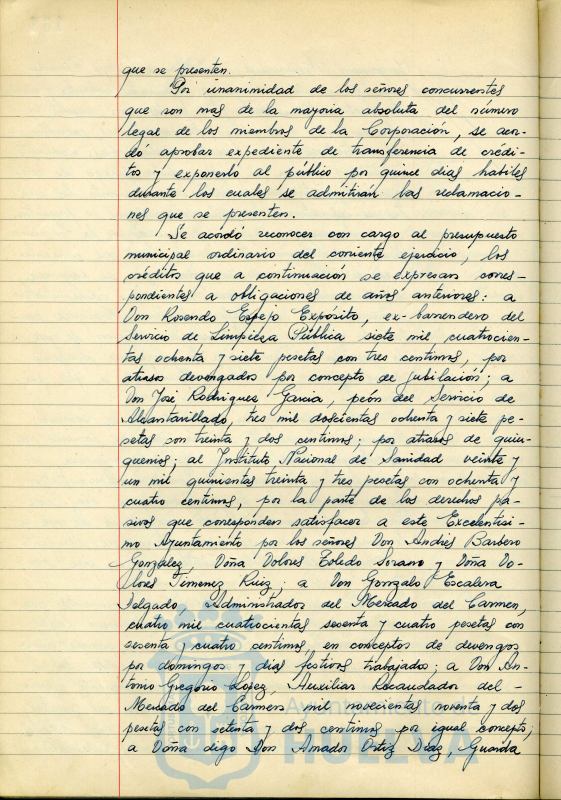 que se presenten.
Por unanimidad de los señores concurrentes
que son mas de la mayoria absoluta del número
legal de los miembros de la Corporación, se acor-
dó aprobar expediente de transferencia de crédi-
tos y exponerlo al público por quince dias habiles
durante los cuales se admitirán las reclamacio-
nes que se presenten.
Se acordó reconocer con cargo al presupuesto
municipal ordinario del corriente ejercicio, los
créditos que a continuación se expresan corres-
pondientes a obligaciones de años anteriores: a
Don Rosendo Espejo Expósito, ex-barrendero del
Servicio de Limpieza Pública siete mil, cuatrocien-
tas ochenta y siete pesetas con tres centimos, por
atrasos devengados por concepto de jubilación; a
Don José Rodriguez Garcia, peón del Servicio de
Alcantarillado, tres mil doscientas ochenta y siete pe-
setas con treinta y dos centimos; por atrasos de quin-
quenios; al Instituto Nacional de Sanidad veinte y
un mil quinientas treinta y tres pesetas con ochenta y
cuatro centimos, por la parte de los derechos pa-
sivos que corresponden satisfacer a este Excelentisi-
mo Ayuntamiento por los señores Don Andrés Barbero
González, Doña Dolores Toledo Sorano y Doña Do-
lores Jimenez Ruiz; a Don Gonzalo Escalera
Delgado, Administrador del Mercado del Carmen,
cuatro mil cuatrocientas sesenta y cuatro pesetas con
sesenta y cuatro centimos, en conceptos de devengos
por domingos y dias festivos trabajados; a Don An-
tonio Gregorio López, Auxiliar Recaudador del -
Mercado del Carmen mil novecientas noventa y dos
pesetas con setenta y dos centimos por igual concepto;
a Doña digo Don Amador Ortiz Diaz, Guarda
Ayuntamiento de
HUELVA